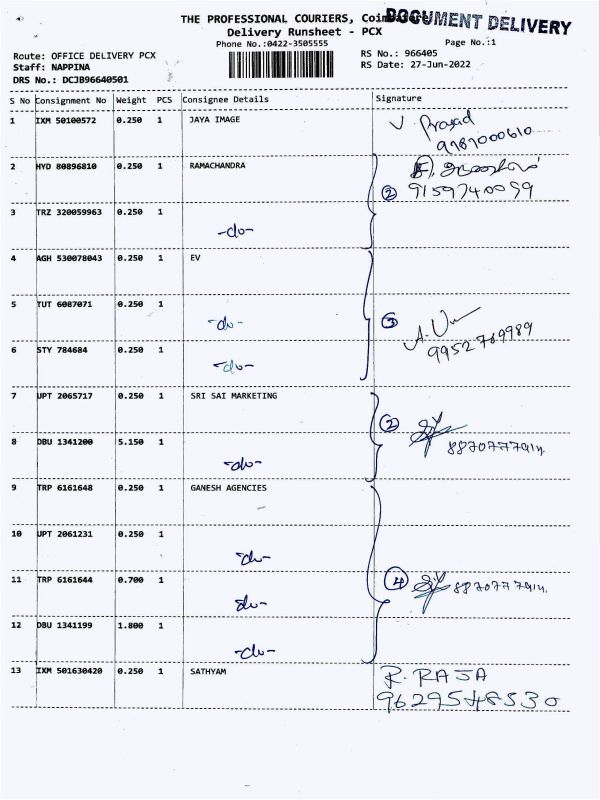 THE PROFESSIONAL COURIERS, Coimbatore
DOCUMENT DELIVERY
Delivery Runsheet - PCX
Phone No.:0422-3505555
Page No.:1
Route: OFFICE DELIVERY PCX
RS No.: 966405
Staff: NAPPINA
RS Date: 27-Jun-2022
DRS No.: DCJB96640501
S No Consignment No Weight PCS Consignee Details Signature
1 IXM 50100572 0.250 1 JAYA IMAGE V. Prasad
9787000610
2 HYD 80896810 0.250 1 RAMACHANDRA
② 9159740099
3 TRZ 320059963 0.250 1
-do-
4 AGH 530078043 0.250 1 EV
5 TUT 6087071 0.250 1
-do- ③
9952769989
6 STY 784684 0.250 1
-do-
7 UPT 2065717 0.250 1 SRI SAI MARKETING
②
8 DBU 1341200 5.150 1
-do-
9 TRP 6161648 0.250 1 GANESH AGENCIES
10 UPT 2061231 0.250 1
-do-
11 TRP 6161644 0.700 1
④
-do-
12 DBU 1341199 1.800 1
-do-
13 IXM 501630420 0.250 1 SATHYAM R. RAJA
9629548530